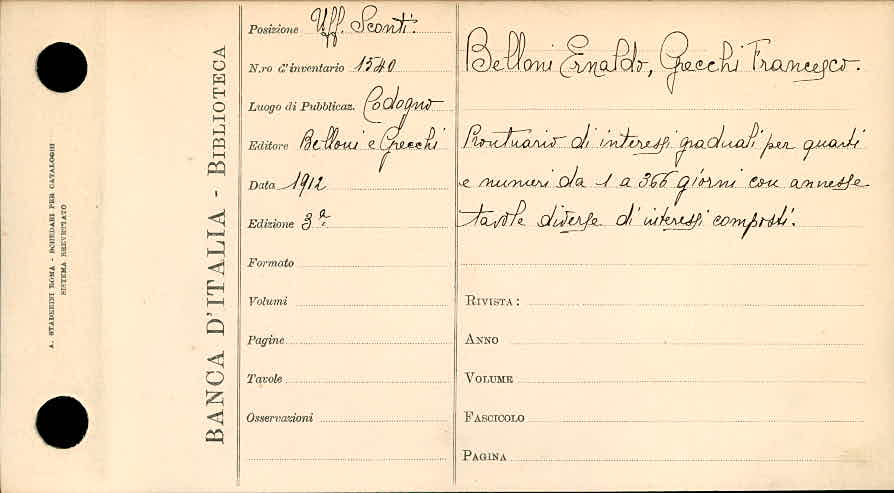 A. STADERINI ROMA - SCHEDARI PER CATALOGHI
SISTEMA BREVETTATO
BANCA D'ITALIA - BIBLIOTECA
Posizione Uff. Sconti.
N.ro d'inventario 1540
Luogo di Pubblicaz. Codogno
Editore Belloni e Grecchi
Data 1912
Edizione 3ª
Formato
Volumi
Pagine
Tavole
Osservazioni
Belloni Ernaldo, Grecchi Francesco.
Prontuario di interessi graduali per quarti
e numeri da 1 a 366 giorni con annesse
tavole diverse di interessi composti.
RIVISTA:
ANNO
VOLUME
FASCICOLO
PAGINA